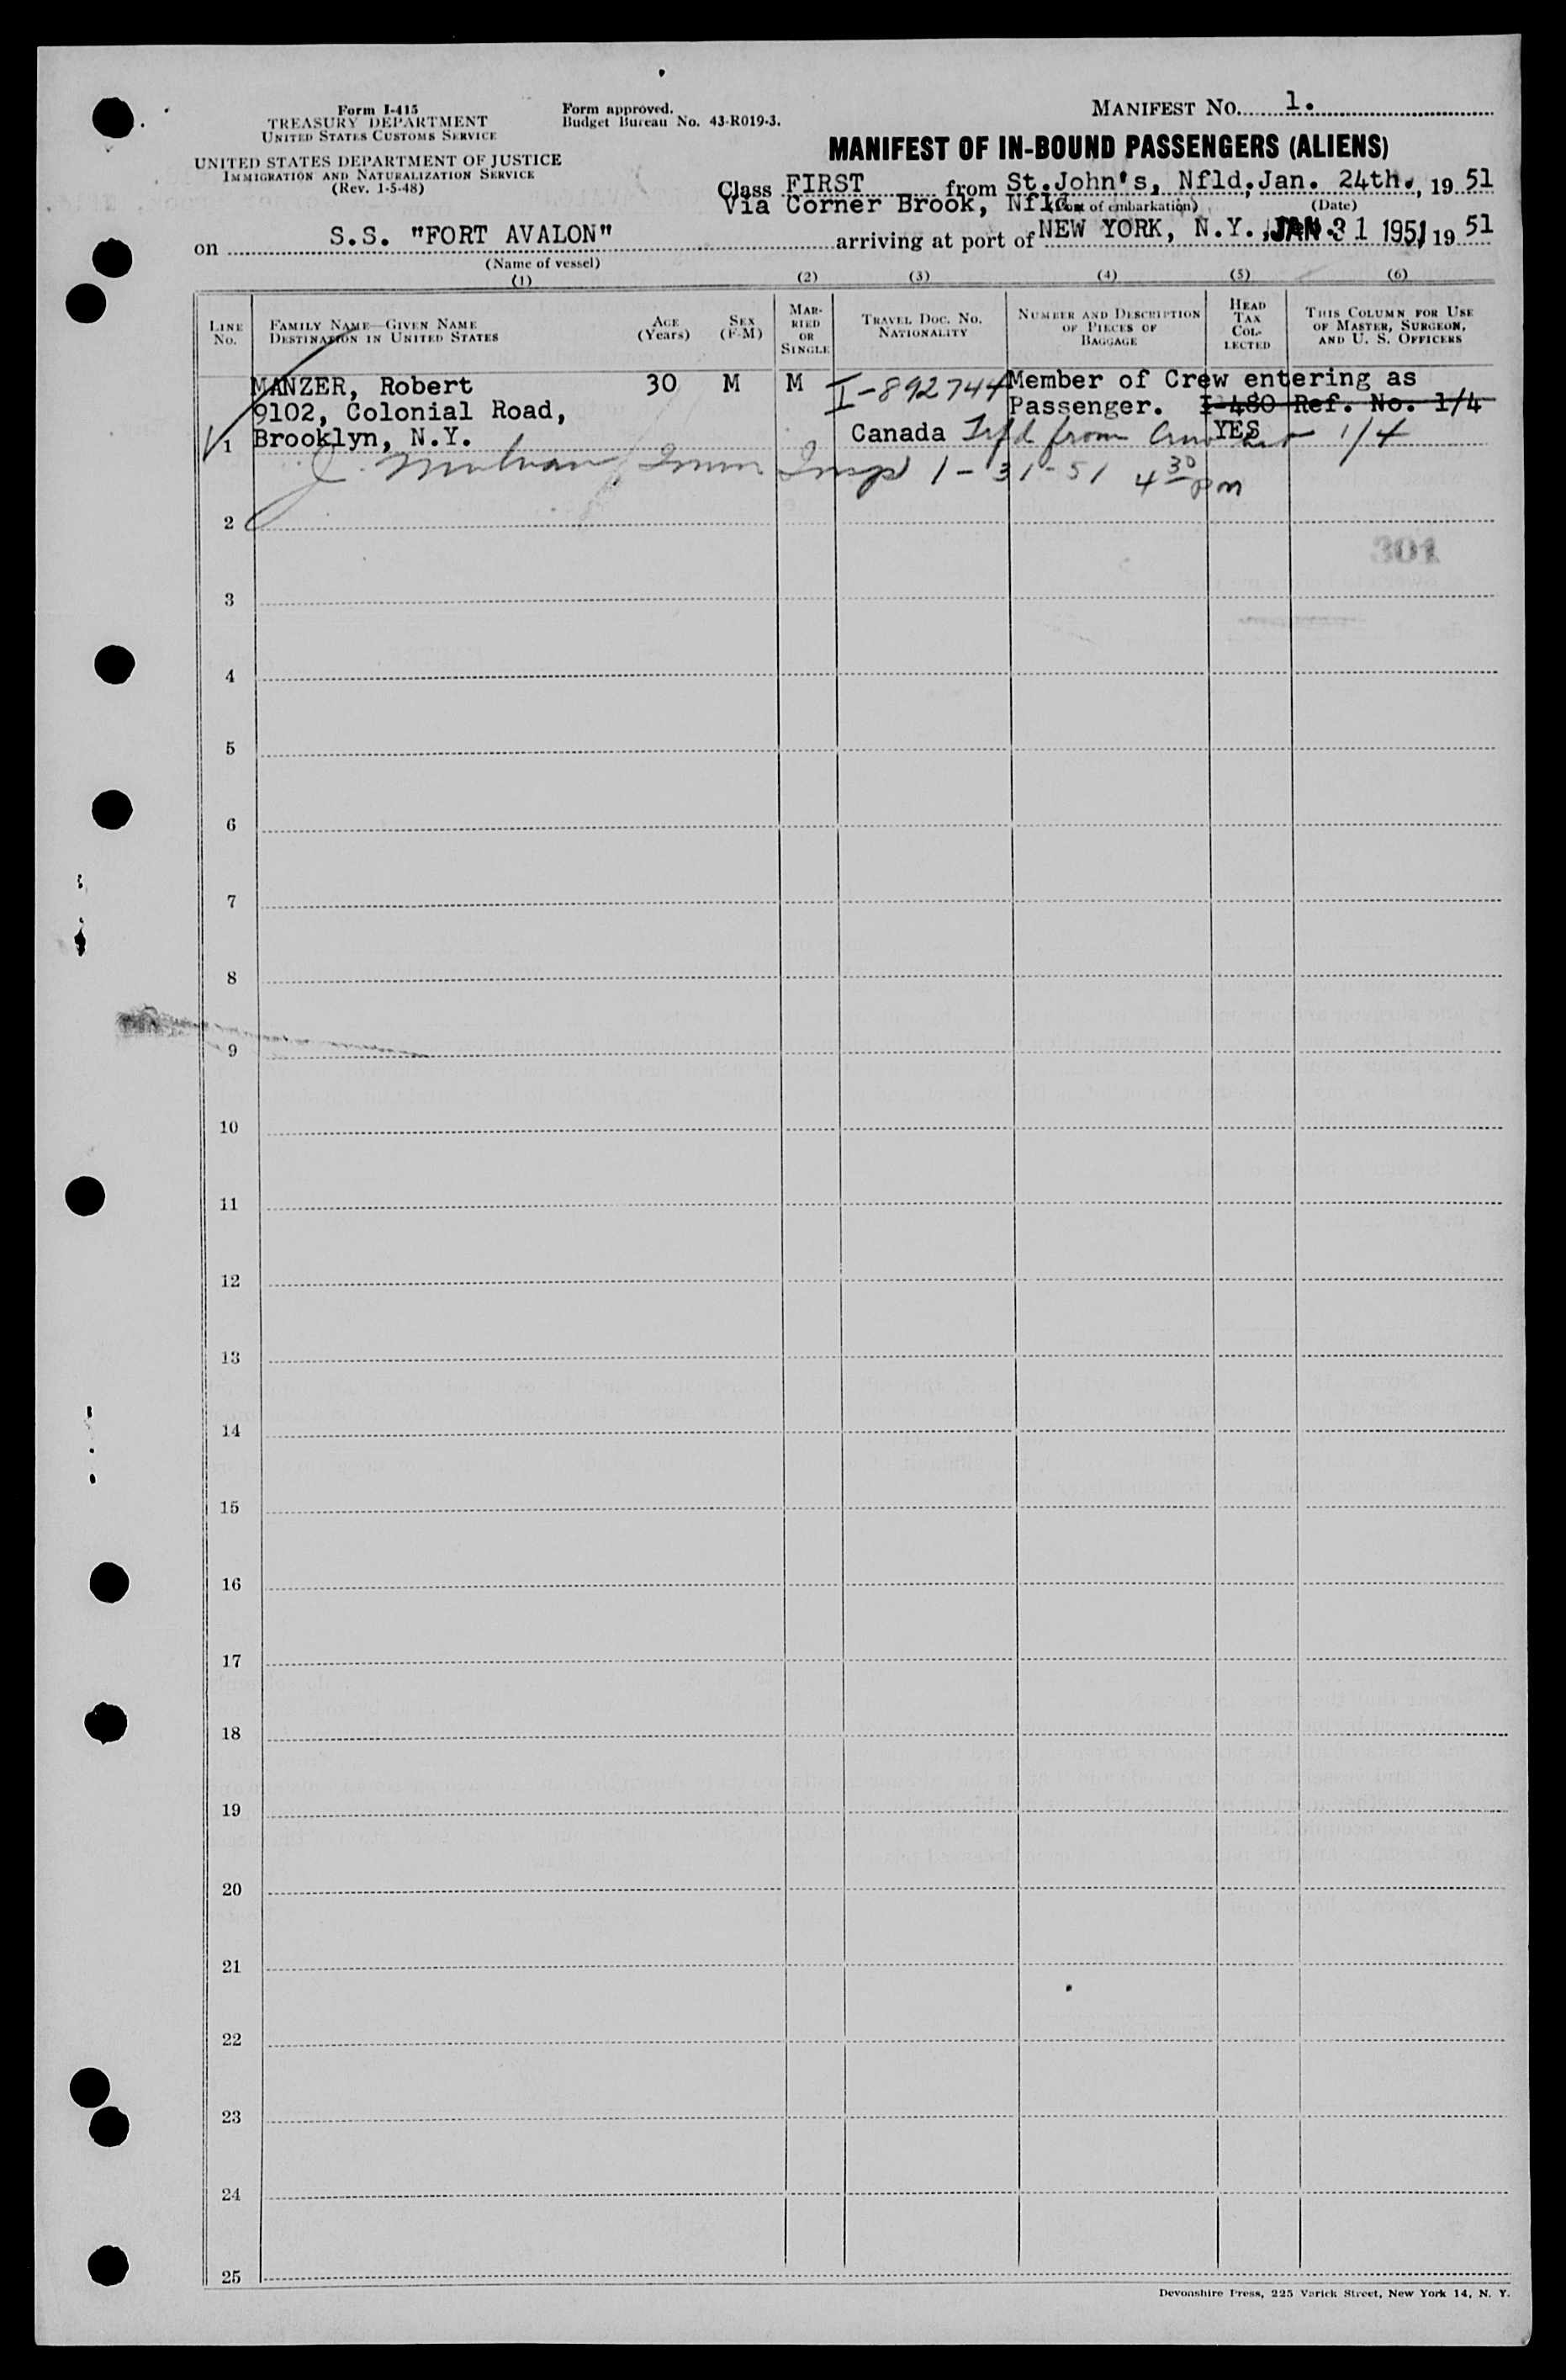 Form I-415
TREASURY DEPARTMENT
UNITED STATES CUSTOMS SERVICE
UNITED STATES DEPARTMENT OF JUSTICE
IMMIGRATION AND NATURALIZATION SERVICE
(Rev. 1-5-48)
Form approved.
Budget Bureau No. 43-R019-3.
MANIFEST NO. 1.
MANIFEST OF IN-BOUND PASSENGERS (ALIENS)
Class FIRST from St.John's, Nfld, Jan. 24th, 19 51
Via Corner Brook, Nfld. (Port of embarkation) (Date)
on S.S. "FORT AVALON" arriving at port of NEW YORK, N.Y., JAN 31 1951, 19 51
(Name of vessel)
(1) (2) (3) (4) (5) (6)
LINE NO.
FAMILY NAME—GIVEN NAME
DESTINATION IN UNITED STATES
AGE (Years)
SEX (F-M)
MARRIED OR SINGLE
TRAVEL DOC. NO.
NATIONALITY
NUMBER AND DESCRIPTION OF PIECES OF BAGGAGE
HEAD TAX COLLECTED
THIS COLUMN FOR USE OF MASTER, SURGEON, AND U. S. OFFICERS
MANZER, Robert 30 M M I-892744 Member of Crew entering as
9102, Colonial Road, Passenger. I-480 Ref. No. 1/4
1 Brooklyn, N.Y. Canada Trfd from Crew list YES 1/4
J. Imm Insp 1-31-51 4 30 pm
2
301
3
4
5
6
7
8
9
10
11
12
13
14
15
16
17
18
19
20
21
22
23
24
25
Devonshire Press, 225 Varick Street, New York 14, N. Y.